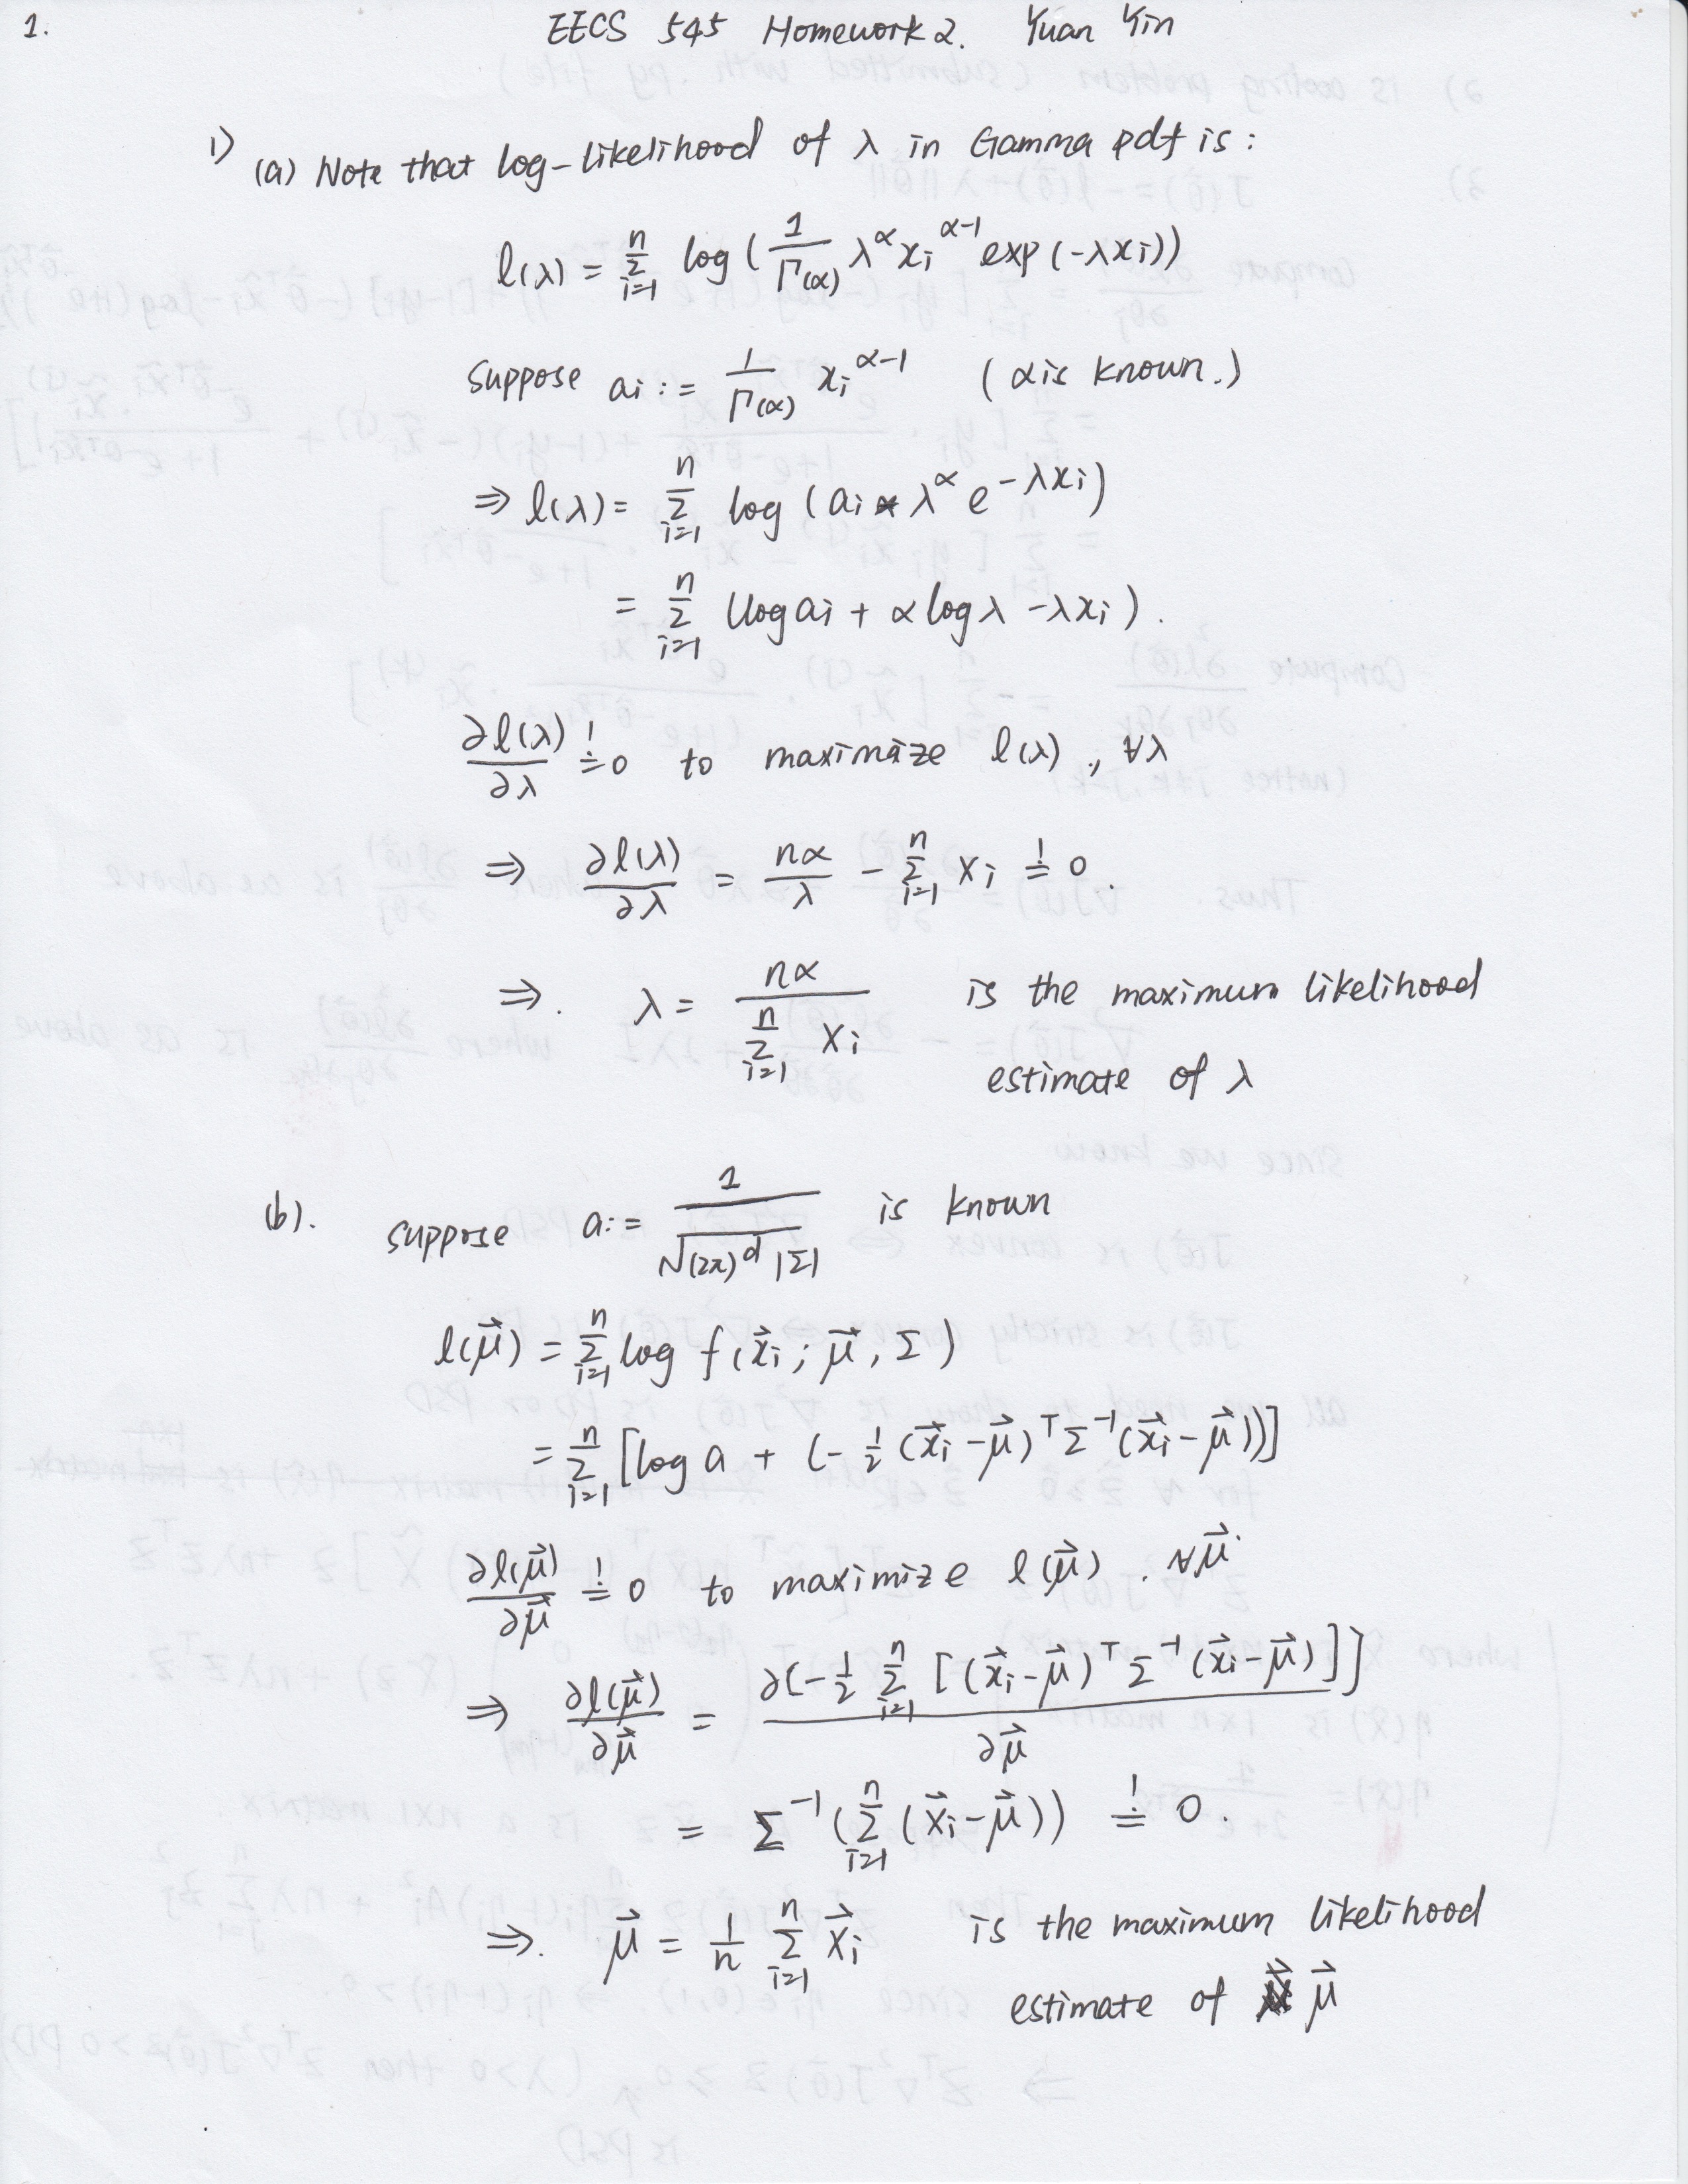 1. EECS 545 Homework 2. Yuan Yin
1) (a) Note that log-likelihood of λ in Gamma pdf is:
l(λ) = Σ_{i=1}^{n} log ( \frac{1}{Γ(α)} λ^α x_i^{α-1} exp(-λx_i))
suppose a_i := \frac{1}{Γ(α)} x_i^{α-1} (α is known.)
⇒ l(λ) = Σ_{i=1}^{n} log (a_i * λ^α e^{-λx_i})
= Σ_{i=1}^{n} (log a_i + α log λ - λx_i).
\frac{∂l(λ)}{∂λ} \overset{!}{=} 0 to maximize l(λ), ∀λ
⇒ \frac{∂l(λ)}{∂λ} = \frac{nα}{λ} - Σ_{i=1}^{n} x_i \overset{!}{=} 0.
⇒. λ = \frac{nα}{Σ_{i=1}^{n} x_i} is the maximum likelihood
estimate of λ
(b). suppose a := \frac{1}{\sqrt{(2π)^d |Σ|}} is known
l(\vec{μ}) = Σ_{i=1}^{n} log f(\vec{x}_i; \vec{μ}, Σ)
= Σ_{i=1}^{n} [log a + (-\frac{1}{2} (\vec{x}_i - \vec{μ})^T Σ^{-1} (\vec{x}_i - \vec{μ}))]
\frac{∂l(\vec{μ})}{∂\vec{μ}} \overset{!}{=} 0 to maximize l(\vec{μ}). ∀\vec{μ}
⇒ \frac{∂l(\vec{μ})}{∂\vec{μ}} = \frac{∂[-\frac{1}{2} Σ_{i=1}^{n} [(\vec{x}_i - \vec{μ})^T Σ^{-1} (\vec{x}_i - \vec{μ})]]}{∂\vec{μ}}
= Σ^{-1} (Σ_{i=1}^{n} (\vec{x}_i - \vec{μ})) \overset{!}{=} 0.
⇒. \vec{μ} = \frac{1}{n} Σ_{i=1}^{n} \vec{x}_i is the maximum likelihood
estimate of \vec{μ}